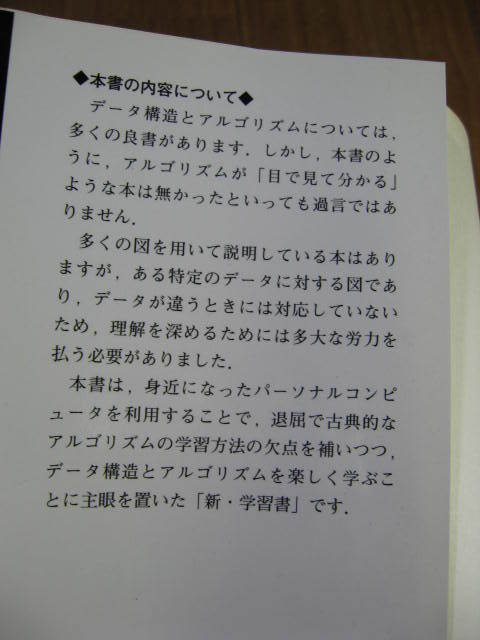 ◆本書の内容について◆
データ構造とアルゴリズムについては，
多くの良書があります．しかし，本書のよ
うに，アルゴリズムが「目で見て分かる」
ような本は無かったといっても過言ではあ
りません．
多くの図を用いて説明している本はあり
ますが，ある特定のデータに対する図であ
り，データが違うときには対応していない
ため，理解を深めるためには多大な労力を
払う必要がありました．
本書は，身近になったパーソナルコンピ
ュータを利用することで，退屈で古典的な
アルゴリズムの学習方法の欠点を補いつつ，
データ構造とアルゴリズムを楽しく学ぶこ
とに主眼を置いた「新・学習書」です．